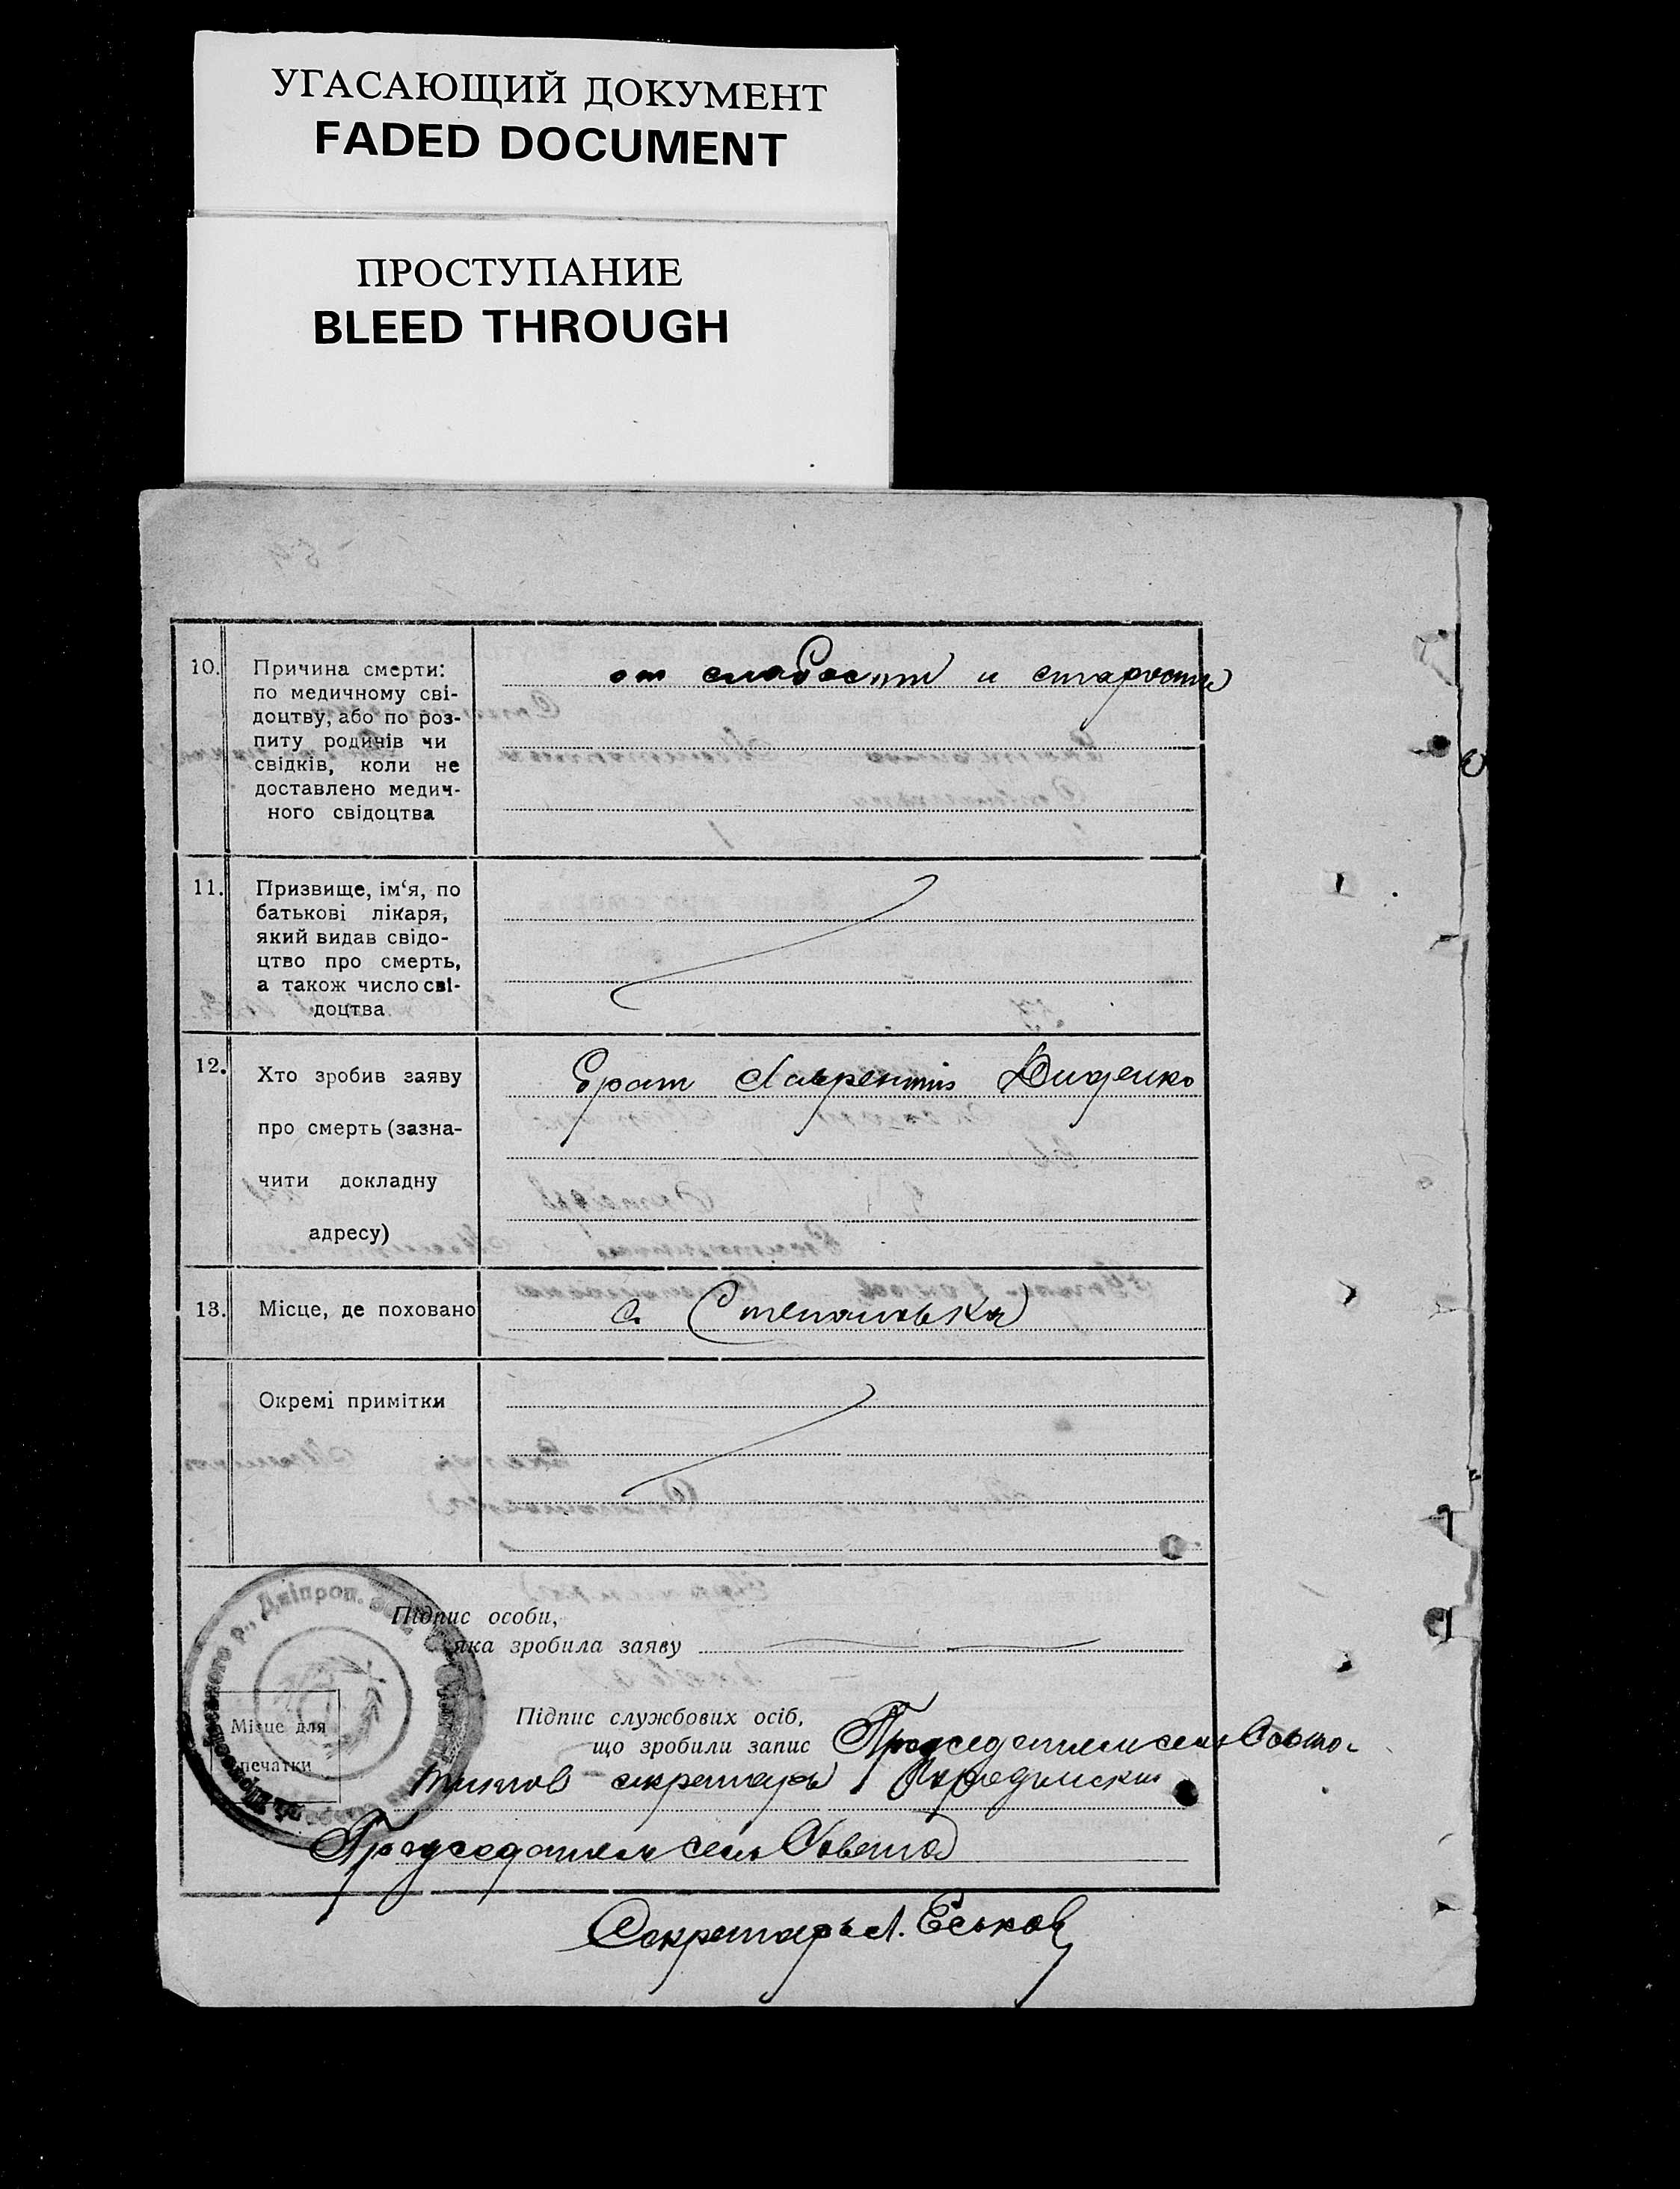 УГАСАЮЩИЙ ДОКУМЕНТ
FADED DOCUMENT
ПРОСТУПАНИЕ
BLEED THROUGH
10. Причина смерти:
по медичному сві-
доцтву, або по роз-
питу родичів чи
свідків, коли не
доставлено медич-
ного свідоцтва
от слабости и старости
11. Призвище, ім‘я, по
батькові лікаря,
який видав свідо-
цтво про смерть,
а також число сві-
доцтва
12. Хто зробив заяву
про смерть (зазна-
чити докладну
адресу)
Брат Лаврентий Диденко
13. Місце, де поховано
с. Степановка
Окремі примітки
Підпис особи,
яка зробила заяву
р., Дніпроп.
Місце для
печатки
Підпис службових осіб,
що зробили запис
Председатель сель
секретарь
Председатель сель Совета
Секретарь Л. Еськов